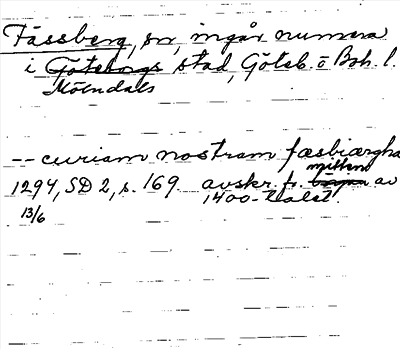 Fässberg, sn, ingår numera
i Göteborgs stad, Göteb. o Boh. l.
Mölndals
-- curiam nostram fæsbiærgha
mitten
1294, SD 2, s. 169 avskr. fr. början av
13/6 1400-talet.